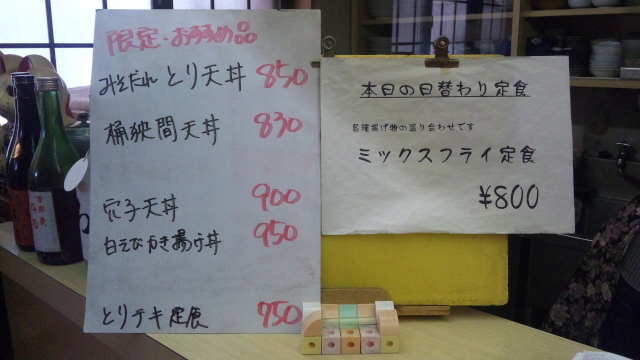 限定・おすすめ品
みそだれ とり天丼 850
桶狭間天丼 830
穴子天丼 900
白えびかき揚げ丼 950
とりテキ定食 750
本日の日替わり定食
各種揚げ物の盛り合わせです
ミックスフライ定食
¥800